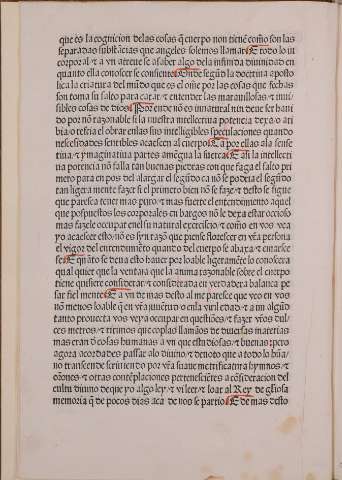 que es la cognicion delas cosas q̄ cuerpo non tienē como son las
separadas substācias que angeles solemos llamar. E todo lo in
corporal ⁊ a vn atreue se a saber algo dela infinida diuinidad en
quanto ella conoscer se consiente. Onde segūd la doctrina aposto
lica la criatura del mūdo que es el ome por las cosas que fechas
son toma su salto para catar ⁊ entender las marauillosas ⁊ inui
sibles cosas de dios. Por ende non es innatural nin deue ser haui
do por nō razonable si la nuestra intellectiua potencia dexa o ali
bia o refria el obrar en las sus intelligibles speculaciones quando
necessidades sensibles acaescen al cuerpo. Ca por ellas a la sense
tiua ⁊ ymaginatiua partes amēgua la fuerca. E asi la intellecti
ua potencia nō falla tan buenas piedras con que faga el salto pri
mero para en pos del alargar el segūdo ca nō se podria el segūdo
tan ligera mente fazer si el primero bien nō se faze. ⁊ desto se sigue
que paresca tener mas puro ⁊ mas fuerte el entendimiento aquel
que pospuestos los corporales enbargos nō le dexa estar occioso
mas fazele occupar en el su natural exercicio ⁊ como en vos vea
yo acaescer esto. nō es syn razō que piense florescer en vr̄a persona
el vigor del entendimiēto quando del cuerpo se abaxa ⁊ enarsce
se. E quāto se deua esto hauer por loable ligeramēte lo conoscera
qual quier que la ventaia que la anima razonable sobre el cuerpo
tiene quisiere considerar ⁊ considerada en verdadera balanca pe
sar fiel mente. E a vn de mas desto al me paresce que veo en vos
nō menos loable q̄ en vr̄a juuentud o en la viril edad ⁊ a mi algūd
tanto prouecta vos veya occupar en questiōes ⁊ fazer vr̄os dul
ces metros ⁊ ritimos que coplas llamāos de diuersas materias
mas eran d̄ cosas humanas a vn que estudiosas ⁊ buenas pero
agora acordades passar alo diuino ⁊ deuoto que a todo lo hūa/
no transcende scriuiendo por vr̄a suaue metrificatura hymnos ⁊
or̄ones ⁊ otras contēplaciones pertenesciētes a cōsideracion del
cultu diuino de que yo algo ley ⁊ vi leer ⁊ loar al Rey de gl̄iosa
memoria q̄ de pocos dias aca de nos se partio. E de mas desto